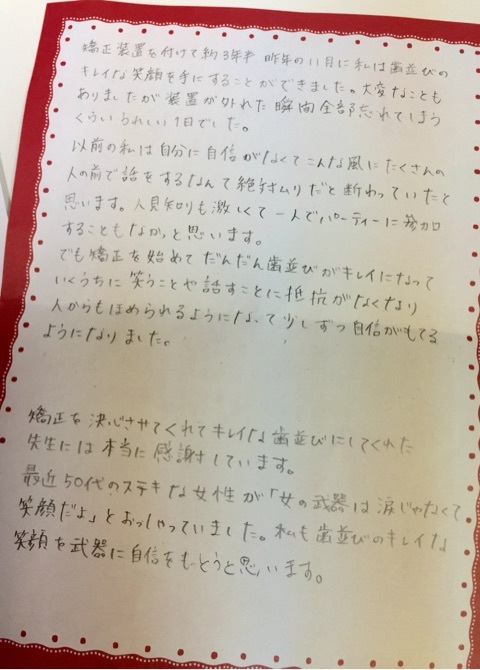 矯正装置を付けて約3年半 昨年の11月に私は歯並びの
キレイな笑顔を手にすることができました。大変なことも
ありましたが装置が外れた瞬間全部忘れてしまう
くらいうれしい1日でした。
以前の私は自分に自信がなくてこんな風にたくさんの
人の前で話をするなんて絶対ムリだと断わっていたと
思います。人見知りも激しくて一人でパーティーに参加
することもなかったと思います。
でも矯正を始めてだんだん歯並びがキレイになって
いくうちに笑うことや話すことに抵抗がなくなり
人からもほめられるようになって少しずつ自信がもてる
ようになりました。
矯正を決心させてくれてキレイな歯並びにしてくれた
先生には本当に感謝しています。
最近50代のステキな女性が「女の武器は涙じゃなくて
笑顔だよ」とおっしゃっていました。私も歯並びのキレイな
笑顔を武器に自信をもとうと思います。